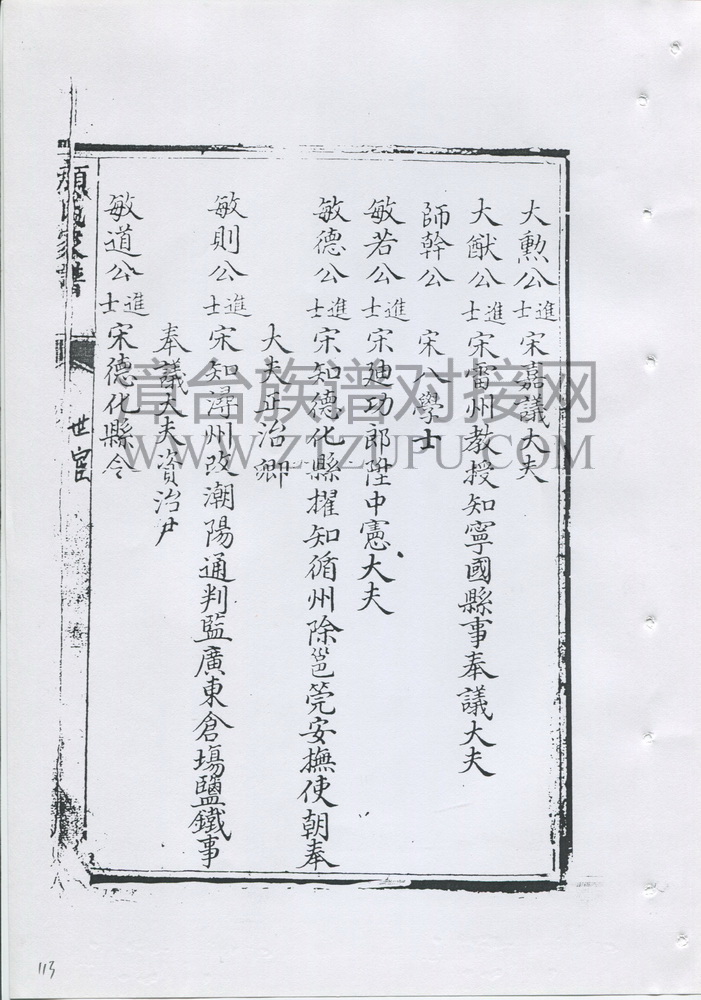 大勲公進士宋嘉議大夫
大猷公進士宋雷州教授知寧國縣事奉議大夫
師幹公 宋八學士
敏若公進士宋廸功郎陞中憲大夫
敏德公進士宋知德化縣擢知循州除邕筦安撫使朝奉
大夫正治卿
敏則公進士宋知潯州改潮陽通判監廣東倉塲鹽鐵事
奉議大夫資治尹
敏道公進士宋德化縣令
顏氏家譜
世宦
漳台族谱对接网
WWW.ZTZUPU.COM
113